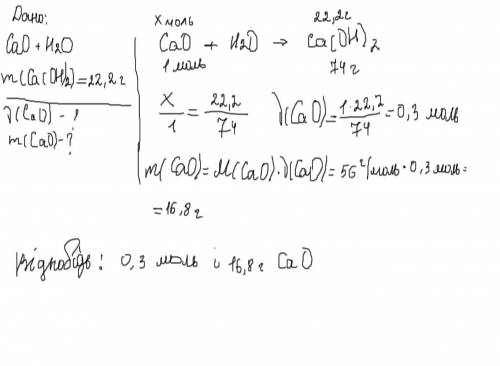 Дано:
CaO + H2O
m(Ca(OH)2) = 22,2 г
ν(CaO) - ?
m(CaO) - ?
x моль 22,2 г
CaO + H2O → Ca(OH)2
1 моль 74 г
x/1 = 22,2/74 ν(CaO) = 1·22,2/74 = 0,3 моль
m(CaO) = M(CaO)·ν(CaO) = 56 г/моль · 0,3 моль =
= 16,8 г
Відповідь: 0,3 моль і 16,8 г CaO